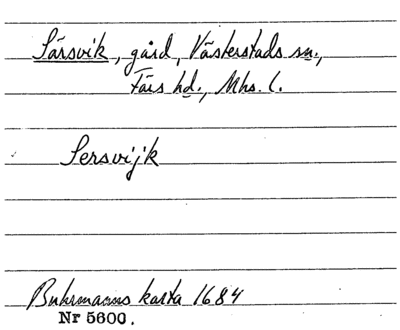 Särsvik, gård, Västerstads sn.,
Färs hd., Mhs. l.
Sersvijk
Buhrmanns karta 1684
Nr 5600.